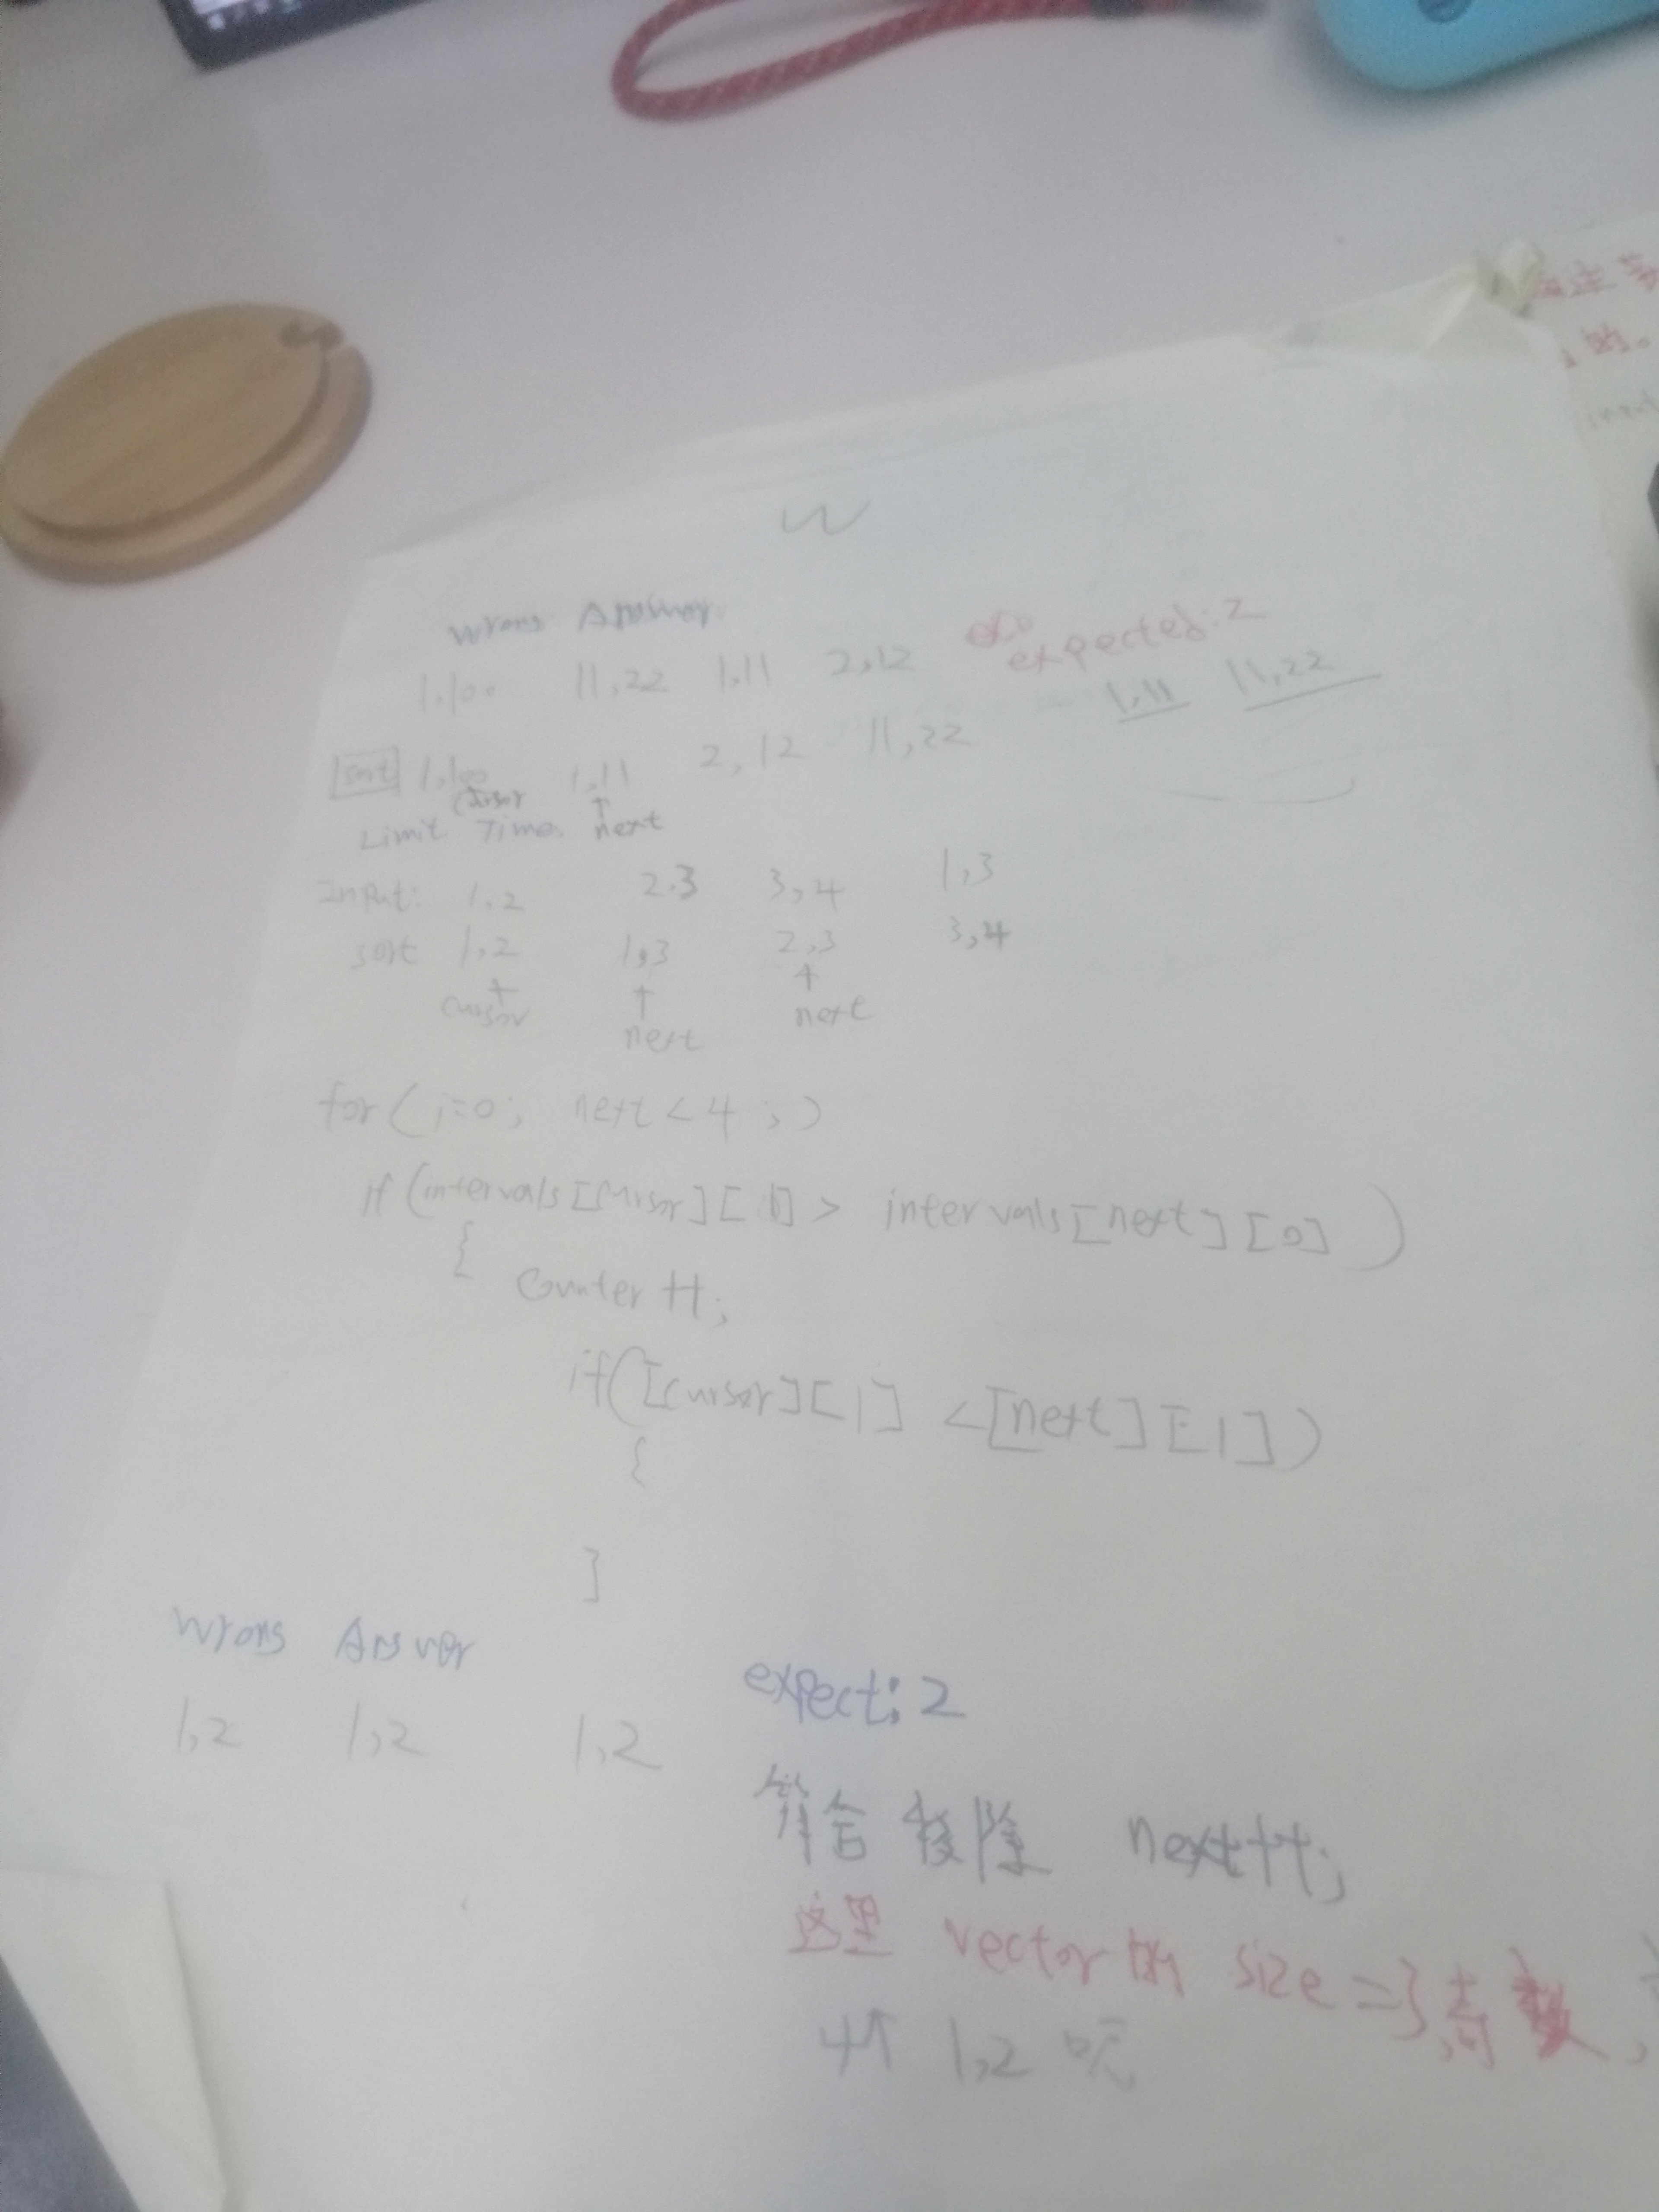 W
Wrong Answer
1,100 11,22 1,11 2,12 expected: 2
1,11 11,22
sort 1,100 1,11 2,12 11,22
cursor ↑
Limit Time. next
Input: 1,2 2,3 3,4 1,3
sort 1,2 1,3 2,3 3,4
↑ ↑ ↑
cursor next next
for(i=0; next<4;)
if(intervals[cursor][1] > intervals[next][0])
{
counter++;
if([cursor][1] <[next][1])
{
}
Wrong Answer
1,2 1,2 1,2 expect: 2
符合移除 next++;
这里 vector的 size =3,奇数,
4个 1,2 呢
的。